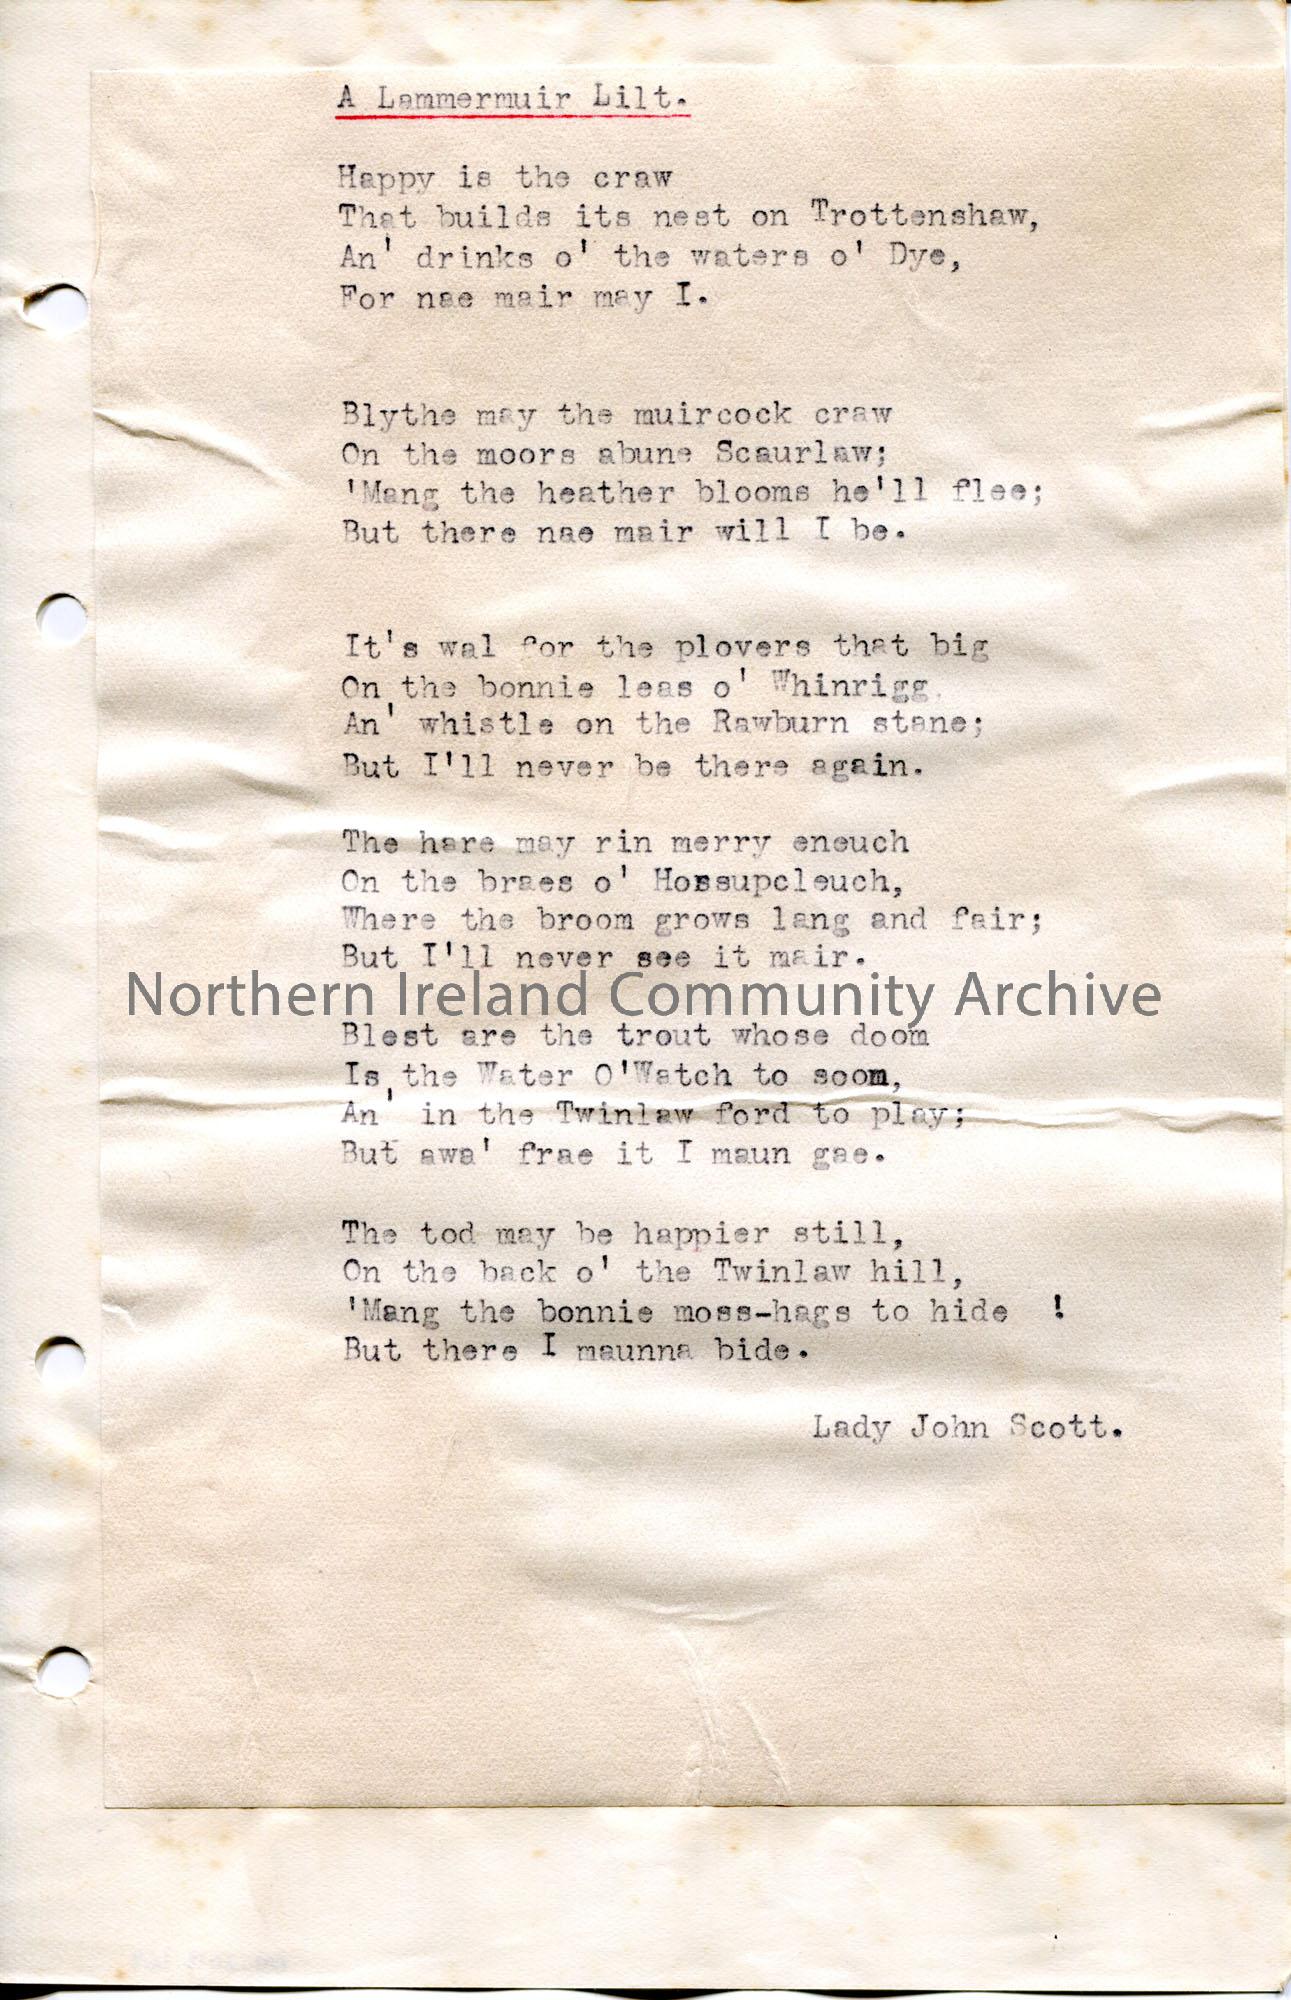 A Lammermuir Lilt.
Happy is the craw
That builds its nest on Trottenshaw,
An' drinks o' the waters o' Dye,
For nae mair may I.
Blythe may the muircock craw
On the moors abune Scaurlaw;
'Mang the heather blooms he'll flee;
But there nae mair will I be.
It's wal for the plovers that big
On the bonnie leas o' Whinrigg,
An' whistle on the Rawburn stane;
But I'll never be there again.
The hare may rin merry eneuch
On the braes o' Horsupcleuch,
Where the broom grows lang and fair;
But I'll never see it mair.
Northern Ireland Community Archive
Blest are the trout whose doom
Is the Water O'Watch to soom,
An' in the Twinlaw ford to play;
But awa' frae it I maun gae.
The tod may be happier still,
On the back o' the Twinlaw hill,
'Mang the bonnie moss-hags to hide !
But there I maunna bide.
Lady John Scott.